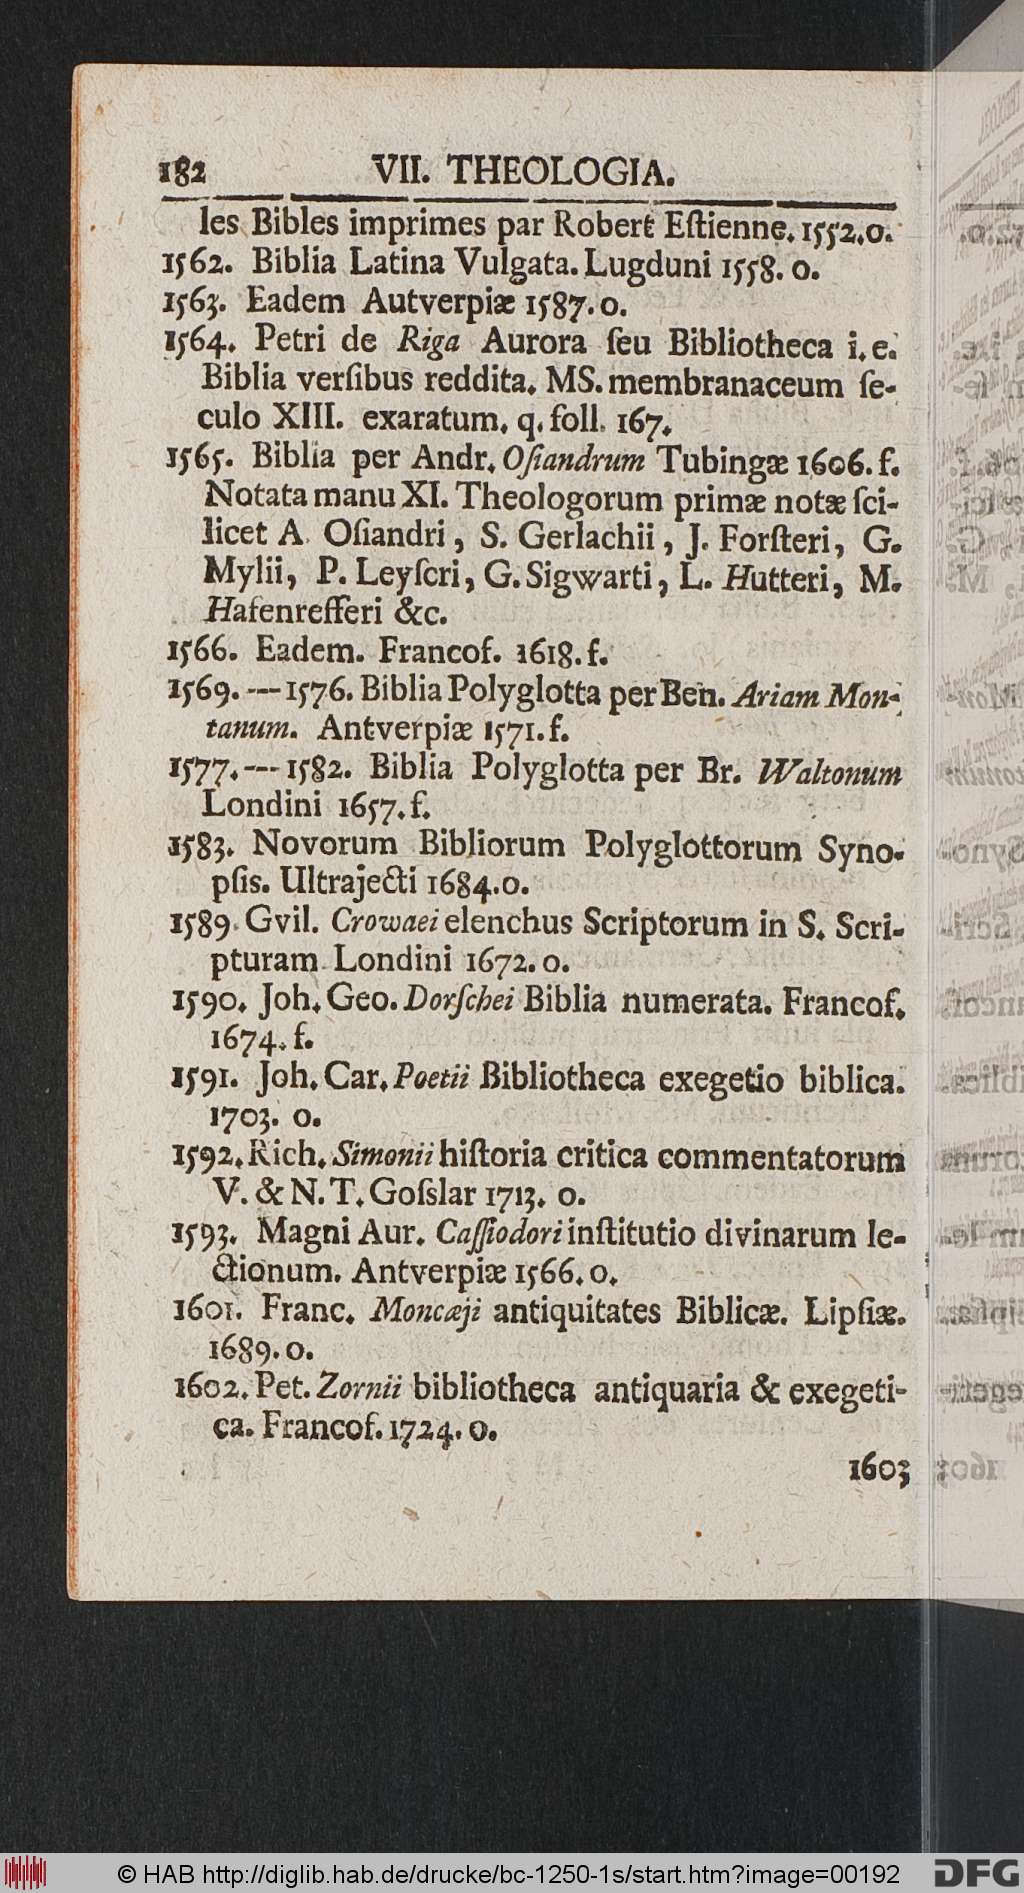 182 VII. THEOLOGIA.
les Bibles imprimes par Robert Eſtienne. 1552.o.
1562. Biblia Latina Vulgata. Lugduni 1558. o.
1563. Eadem Autverpiæ 1587. o.
1564. Petri de Riga Aurora ſeu Bibliotheca i. e.
Biblia verſibus reddita. MS. membranaceum ſe-
culo XIII. exaratum. q. foll. 167.
1565. Biblia per Andr. Oſiandrum Tubingæ 1606. f.
Notata manu XI. Theologorum primæ notæ ſci-
licet A. Oſiandri, S. Gerlachii, J. Forſteri, G.
Mylii, P. Leyſcri, G. Sigwarti, L. Hutteri, M.
Hafenrefferi &c.
1566. Eadem. Francof. 1618. f.
1569. --- 1576. Biblia Polyglotta per Ben. Ariam Mon-
tanum. Antverpiæ 1571. f.
1577. --- 1582. Biblia Polyglotta per Br. Waltonum
Londini 1657. f.
1583. Novorum Bibliorum Polyglottorum Syno-
pſis. Ultrajecti 1684.o.
1589. Gvil. Crowaei elenchus Scriptorum in S. Scri-
pturam. Londini 1672. o.
1590. Joh. Geo. Dorſchei Biblia numerata. Francof.
1674. f.
1591. Joh. Car. Poetii Bibliotheca exegetio biblica.
1703. o.
1592. Rich. Simonii hiſtoria critica commentatorum
V. & N. T. Goſslar 1713. o.
1593. Magni Aur. Caſſiodori inſtitutio divinarum le-
ctionum. Antverpiæ 1566. o.
1601. Franc. Moncæji antiquitates Biblicæ. Lipſiæ.
1689. o.
1602. Pet. Zornii bibliotheca antiquaria & exegeti-
ca. Francof. 1724. o.
1603
© HAB http://diglib.hab.de/drucke/bc-1250-1s/start.htm?image=00192
DFG